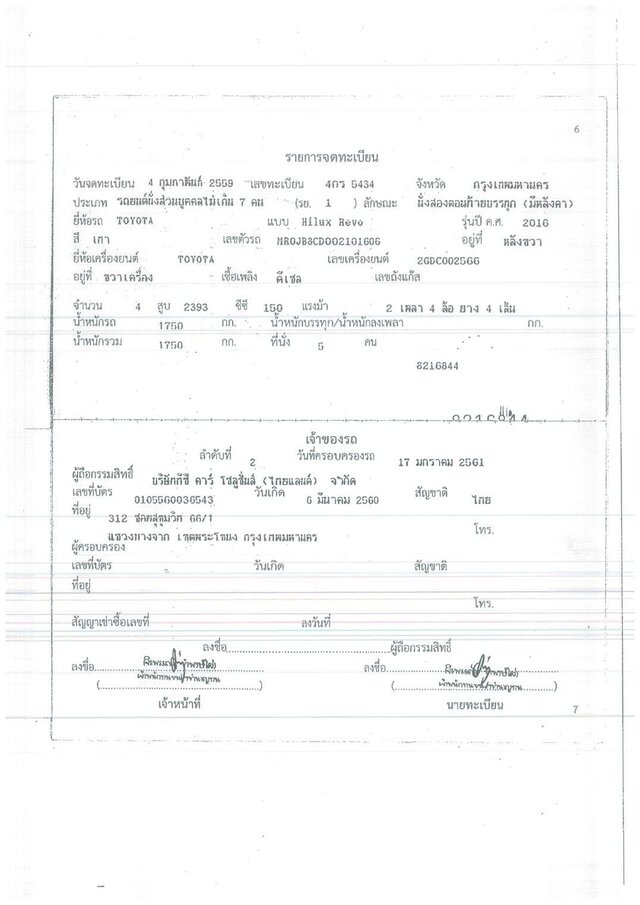 6
รายการจดทะเบียน
วันจดทะเบียน 4 กุมภาพันธ์ 2559 เลขทะเบียน 4กร 5434 จังหวัด กรุงเทพมหานคร
ประเภท รถยนต์นั่งส่วนบุคคลไม่เกิน 7 คน (รย. 1 ) ลักษณะ นั่งสองตอนท้ายบรรทุก (มีหลังคา)
ยี่ห้อรถ TOYOTA แบบ Hilux Revo รุ่นปี ค.ศ. 2016
สี เทา เลขตัวรถ MR0JB8CD002101606 อยู่ที่ หลังขวา
ยี่ห้อเครื่องยนต์ TOYOTA เลขเครื่องยนต์ 2GDC002566
อยู่ที่ ขวาเครื่อง เชื้อเพลิง ดีเซล เลขถังแก๊ส
จำนวน 4 สูบ 2393 ซีซี 150 แรงม้า 2 เพลา 4 ล้อ ยาง 4 เส้น
น้ำหนักรถ 1750 กก. น้ำหนักบรรทุก/น้ำหนักลงเพลา กก.
น้ำหนักรวม 1750 กก. ที่นั่ง 5 คน
8216844
8216844
เจ้าของรถ
ลำดับที่ 2 วันที่ครอบครองรถ 17 มกราคม 2561
ผู้ถือกรรมสิทธิ์ บริษัททีซี คาร์ โซลูชั่นส์ (ไทยแลนด์) จำกัด
เลขที่บัตร 0105560036543 วันเกิด 6 มีนาคม 2560 สัญชาติ ไทย
ที่อยู่ 312 ซอยสุขุมวิท 66/1
โทร.
แขวงบางจาก เขตพระโขนง กรุงเทพมหานคร
ผู้ครอบครอง
เลขที่บัตร วันเกิด สัญชาติ
ที่อยู่
โทร.
สัญญาเช่าซื้อเลขที่ ลงวันที่
ลงชื่อ ผู้ถือกรรมสิทธิ์
ลงชื่อ ลงชื่อ
เจ้าหน้าที่ นายทะเบียน
7